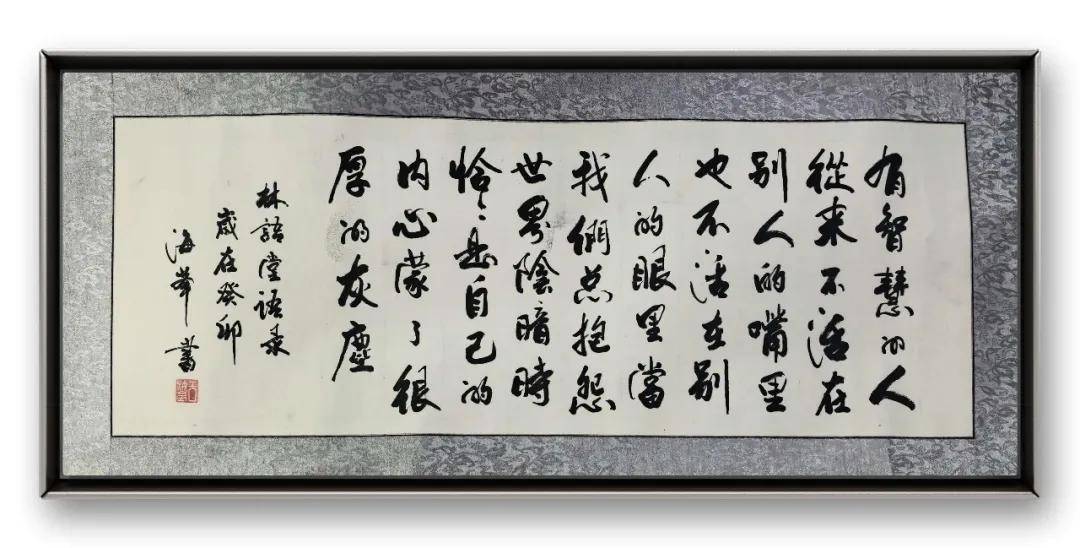 有智慧的人
從来不活在
别人的嘴里
也不活在别
人的眼里當
我們总抱怨
世界陰暗時
恰恰是自己的
内心蒙了很
厚的灰塵
林語堂語录
歲在癸卯
海峰書